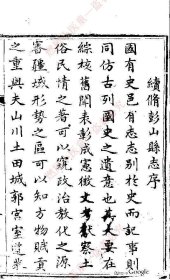 續脩彭山縣志序
國有史邑有志志別於史而記事則
同仿古列國史之遺意也其大要在
綜核舊聞表彰成憲徵文考獻察土
俗民情之著可以窺政治教化之源
審疆域形勢之區可以知方物賦貢
之重與夫山川土田城郭宮室